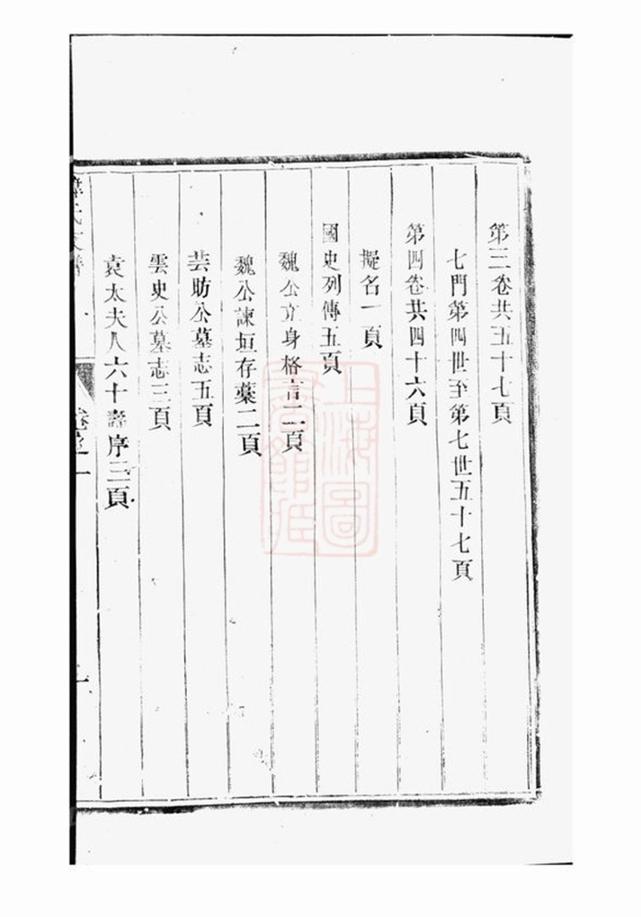 第三卷共五十七頁
七門第四世至第七世五十七頁
第四卷共四十六頁
擬名一頁
國史列傳五頁
魏公立身格言二頁
魏公諫垣存藁二頁
芸昉公墓志五頁
雲史公墓志三頁
袁太夫人六十壽序三頁
卷之一
上海圖
書館藏